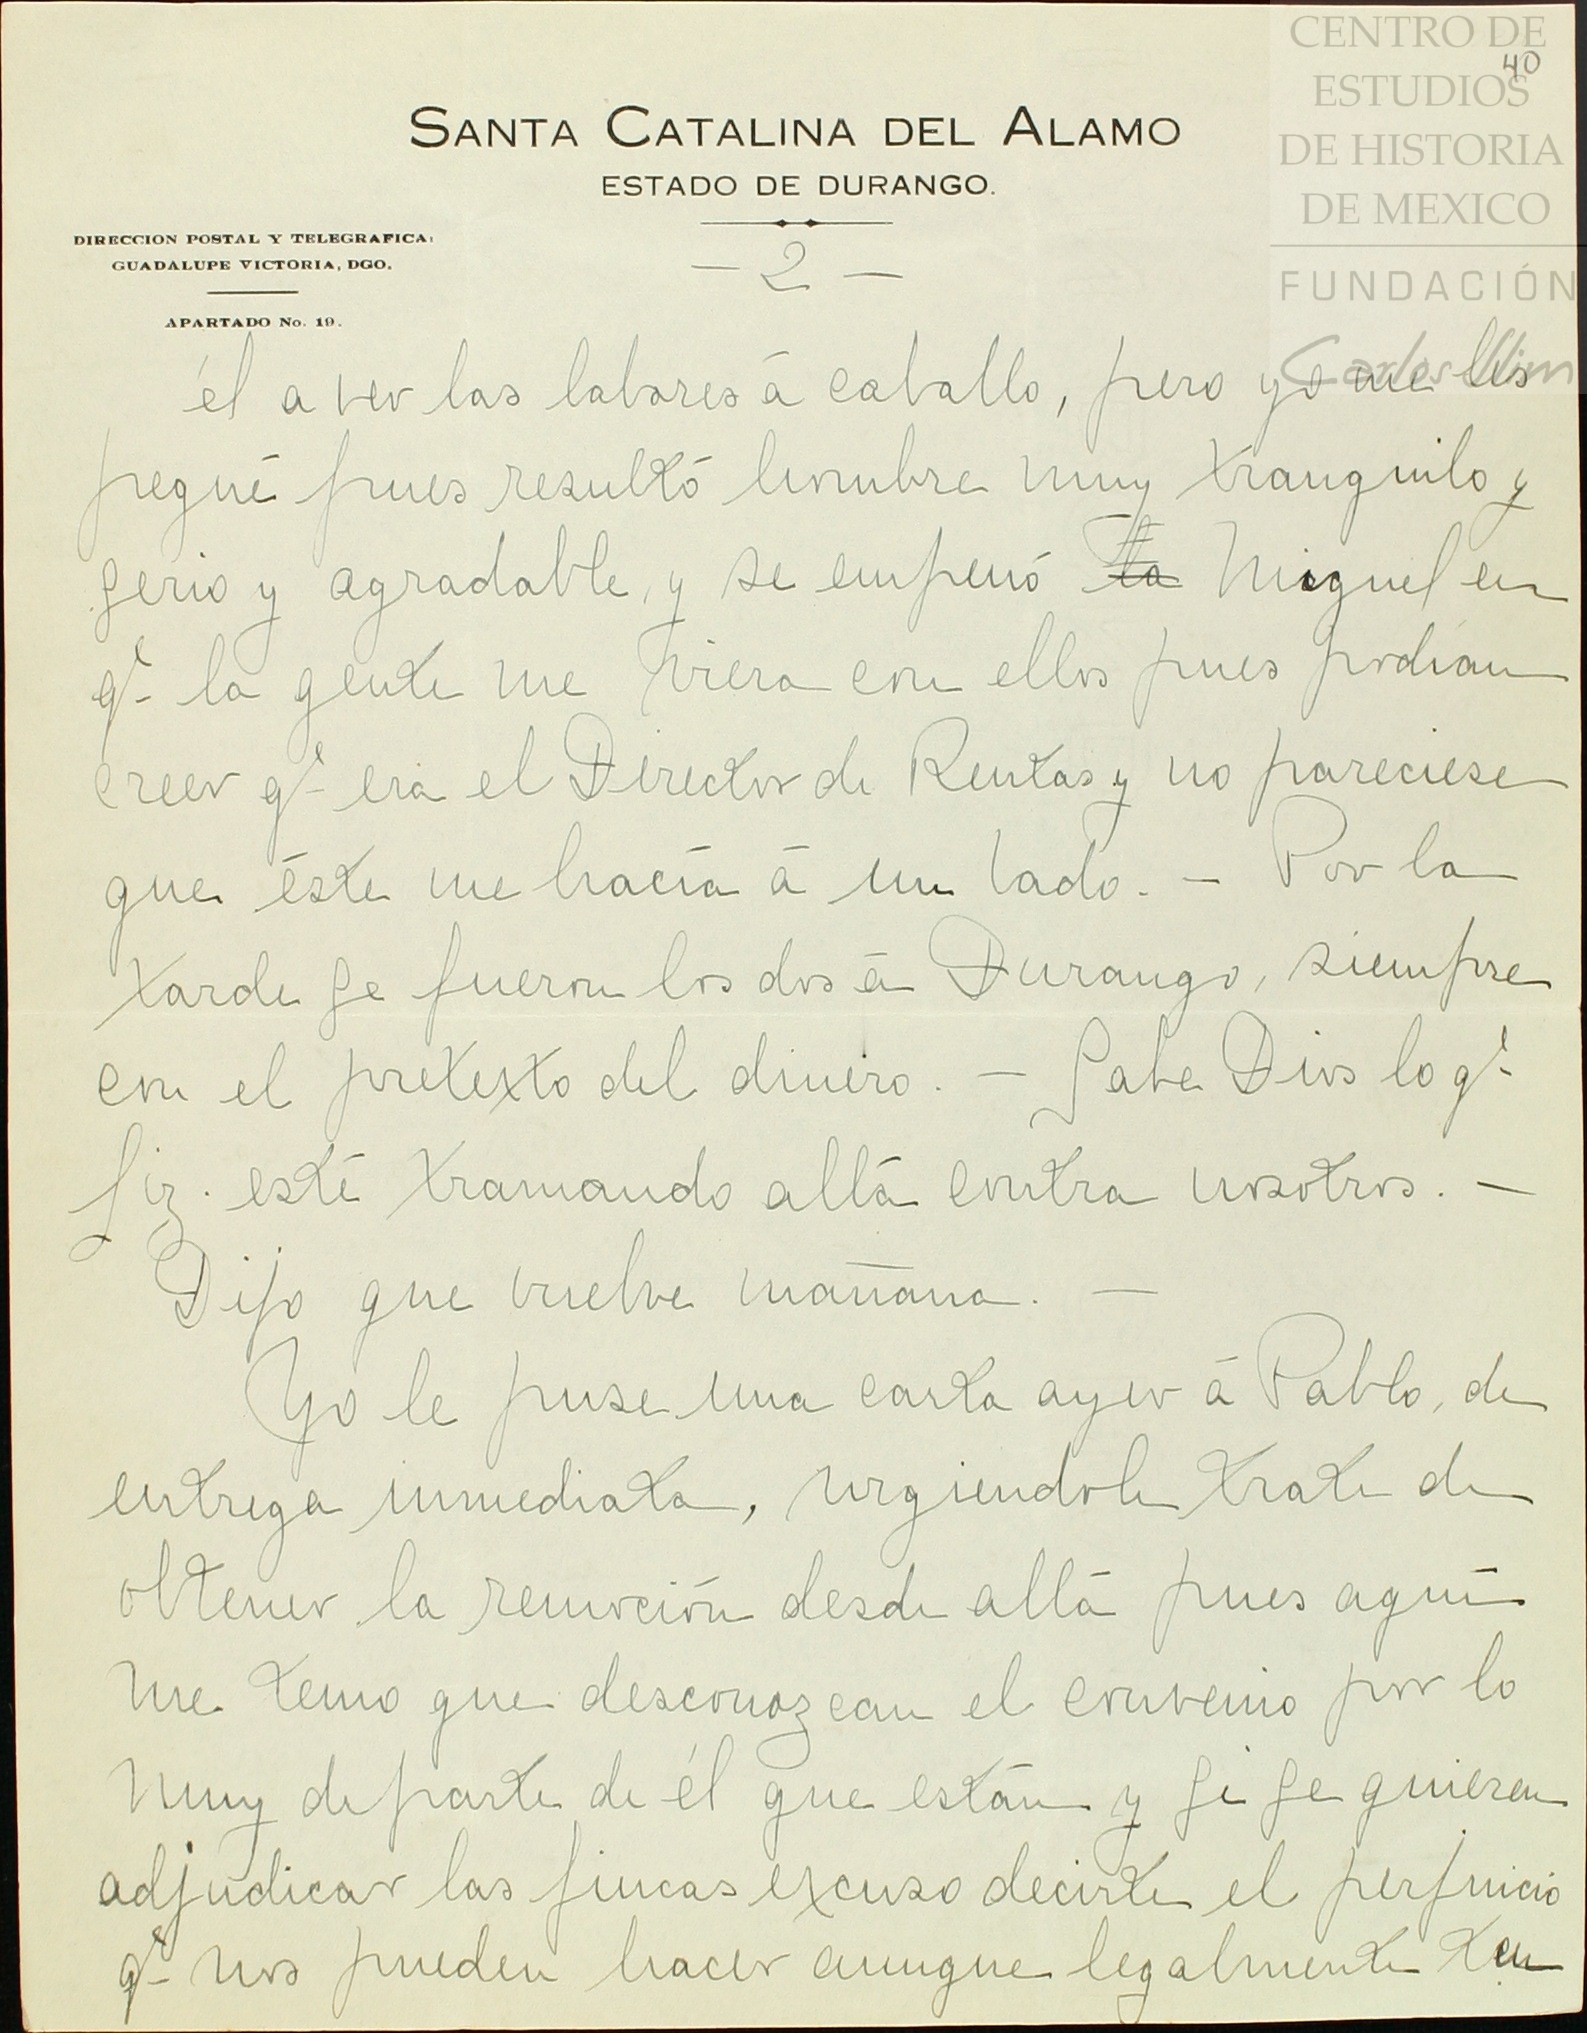 CENTRO DE
ESTUDIOS
DE HISTORIA
DE MEXICO
FUNDACIÓN
Carlos Slim
40
SANTA CATALINA DEL ALAMO
ESTADO DE DURANGO.
DIRECCION POSTAL Y TELEGRAFICA:
GUADALUPE VICTORIA, DGO.
APARTADO No. 19.
— 2 —
él a ver las labores á caballo, pero yo me les
pegué pues resultó hombre muy tranquilo y
serio y agradable, y se empenó Miguel en
qe la gente me viera con ellos pues podían
creer qe era el Director de Rentas y no pareciese
que éste me hacía á un lado. — Por la
tarde se fueron los dos á Durango, siempre
con el pretexto del dinero. — Sabe Dios lo qe
Liz. esté tramando allá contra nosotros. —
Dijo que vuelve mañana. —
Yo le puse una carta ayer á Pablo, de
entrega inmediata, urgiendole trate de
obtener la remoción desde allá pues aquí
me temo que desconozcan el convenio por lo
muy de parte de él que están y si se quieren
adjudicar las fincas excuso decirte el perjuicio
qe nos pueden hacer aunque legalmente ten